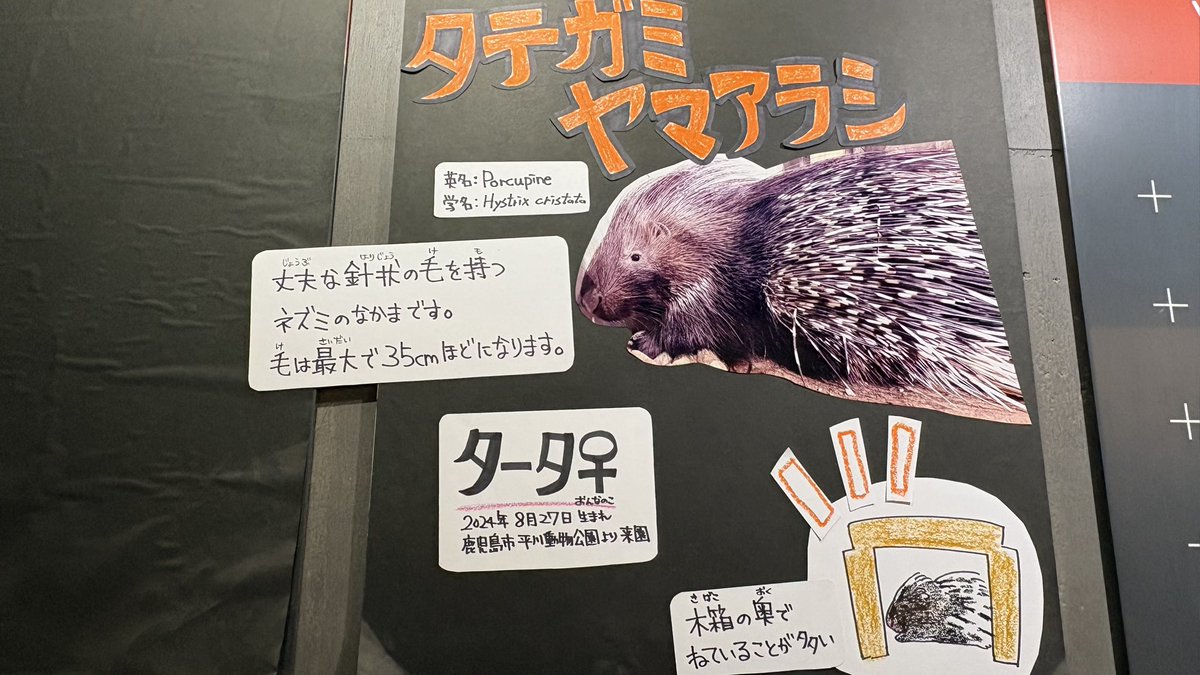 タテガミ
ヤマアラシ
英名：Porcupine
学名：Hystrix cristata
じょうぶ はりじょう け も
丈夫な針状の毛を持つ
ネズミのなかまです。
け さいだい
毛は最大で35cmほどになります。
ターター♀
おんなのこ
2024年8月27日生まれ
鹿児島市平川動物公園より来園
きばこ おく
木箱の奥で
ねていることが多い